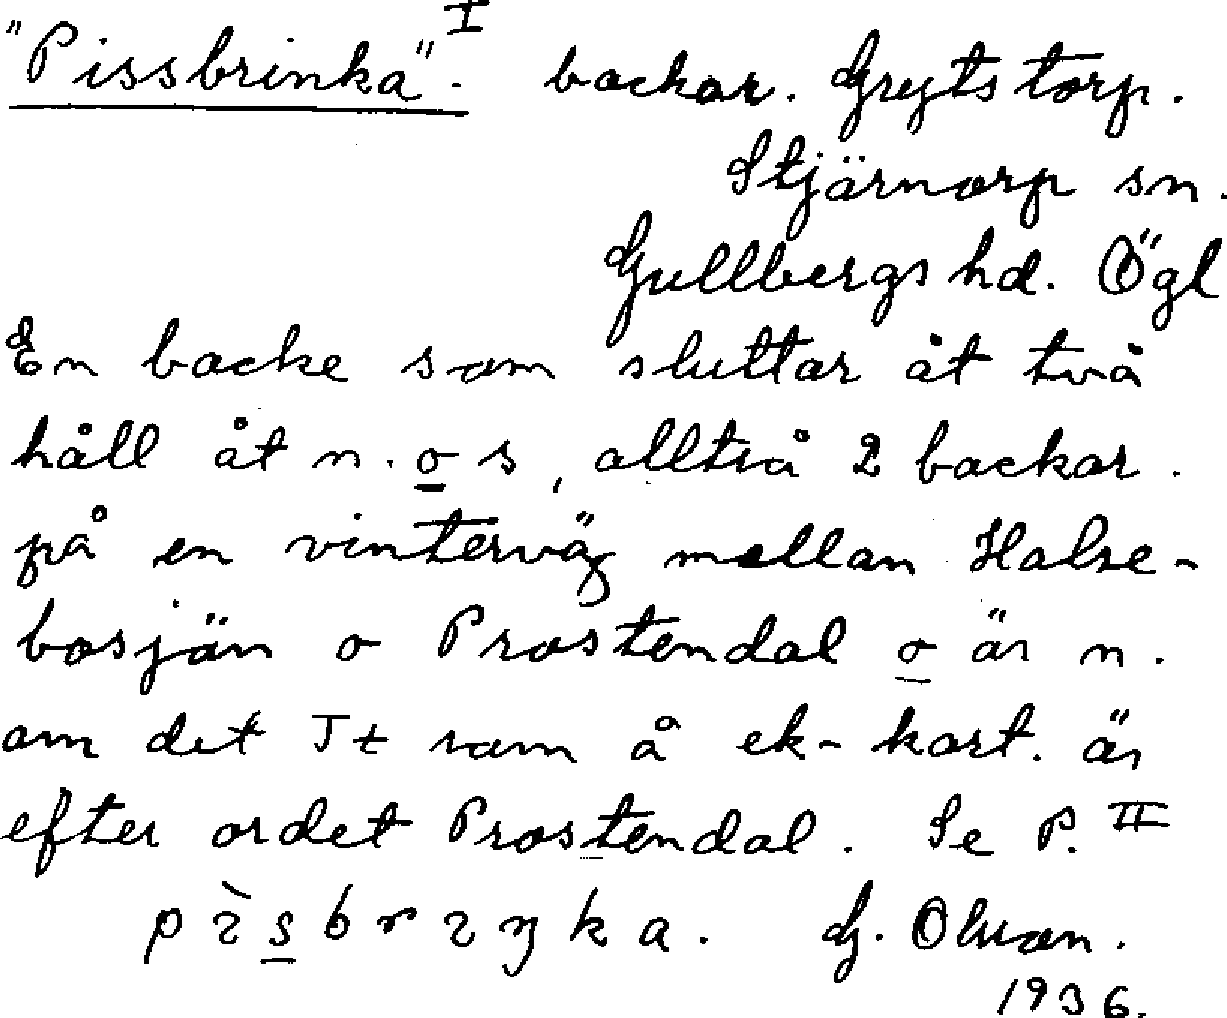 "Pissbrinka" I. backar. Grytstorp.
Stjärnorp sn.
Gullbergs hd. Ögl
En backe som sluttar åt två
håll åt n. o s, alltså 2 backar.
på en vinterväg mellan Halse-
bosjön o Prostendal o är n.
om det Jt som å ek-kart. är
efter ordet Prostendal. Se P. II
pìsbrɩŋka. G. Olson.
1936.